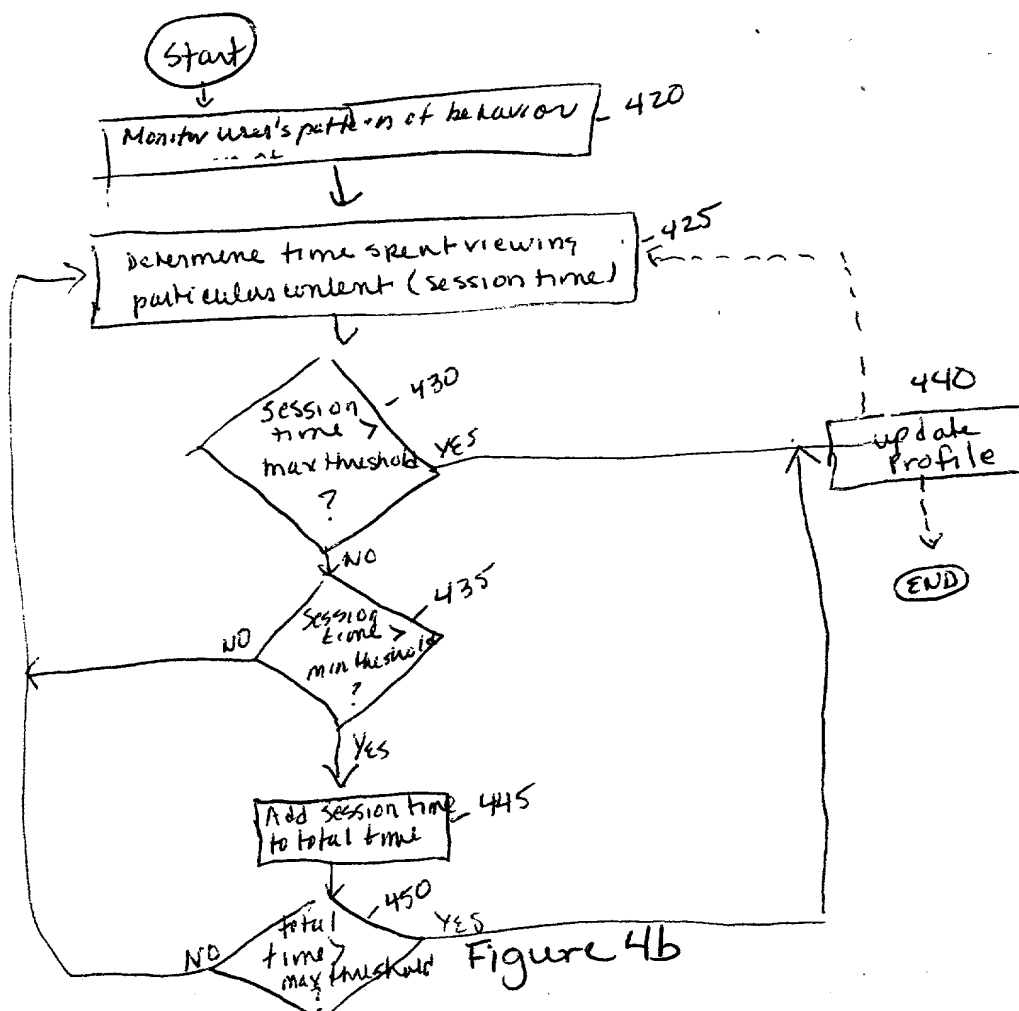 Start
Monitor user's pattern of behavior
420
Determine time spent viewing
particular content (session time)
425
session
time >
max threshold
?
430
YES
NO
440
update
Profile
END
session
time >
min threshold
?
435
NO
YES
Add session time
to total time
445
total
time >
max threshold
?
450
NO
YES
Figure 4b